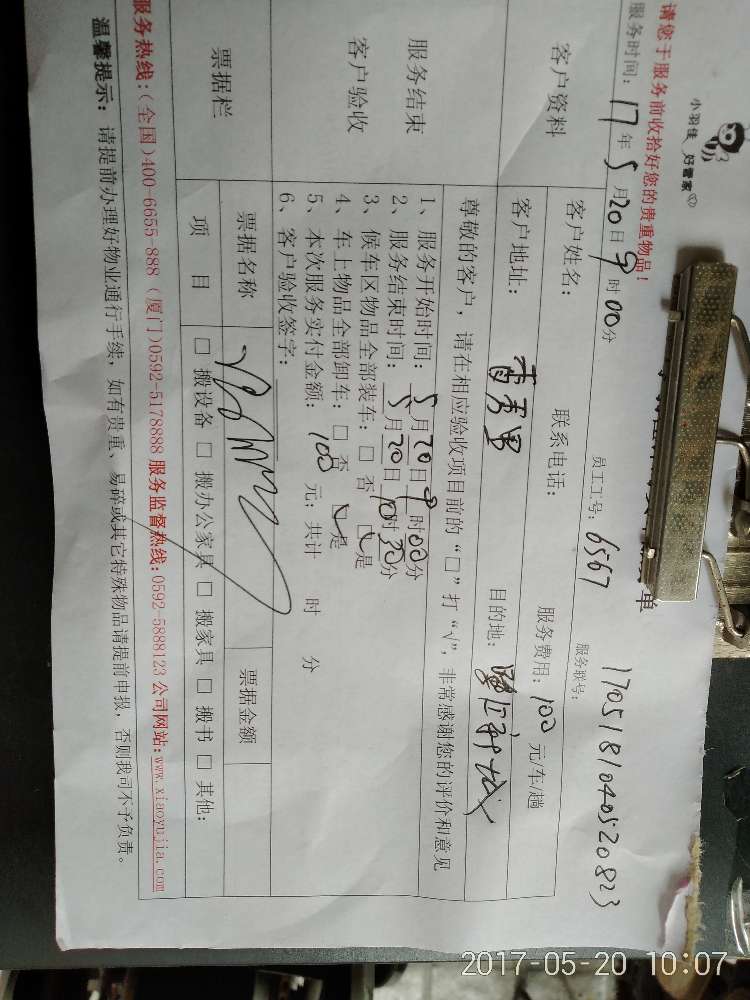 小羽佳 好管家
单
请您于服务前收拾好您的贵重物品!
服务时间: 17年5月20日9时00分 员工工号: 6567 服务联号: 1705181040520823
客户资料
客户姓名: 联系电话: 服务费用: 100元/车/趟
客户地址: 目的地:
尊敬的客户,请在相应验收项目前的“□”打“√”,非常感谢您的评价和意见
服务结束
客户验收
1、服务开始时间: 5月20日9时00分
2、服务结束时间: 5月20日10时30分
3、候车区物品全部装车: □ 否 □是
4、车上物品全部卸车: □ 否 □是
5、本次服务实付金额: 100 元; 共计 时 分
6、客户验收签字:
票据栏
票据名称 票据金额
项 目 □ 搬设备 □ 搬办公家具 □ 搬家具 □ 搬书 □ 其他:
服务热线:(全国)400-6655-888 (厦门)0592-5178888 服务监督热线:0592-5888123 公司网站:www.xiaoyujia.com
温馨提示: 请提前办理好物业通行手续,如有贵重、易碎或其它特殊物品请提前申报,否则我司不予负责。
2017-05-20 10:07